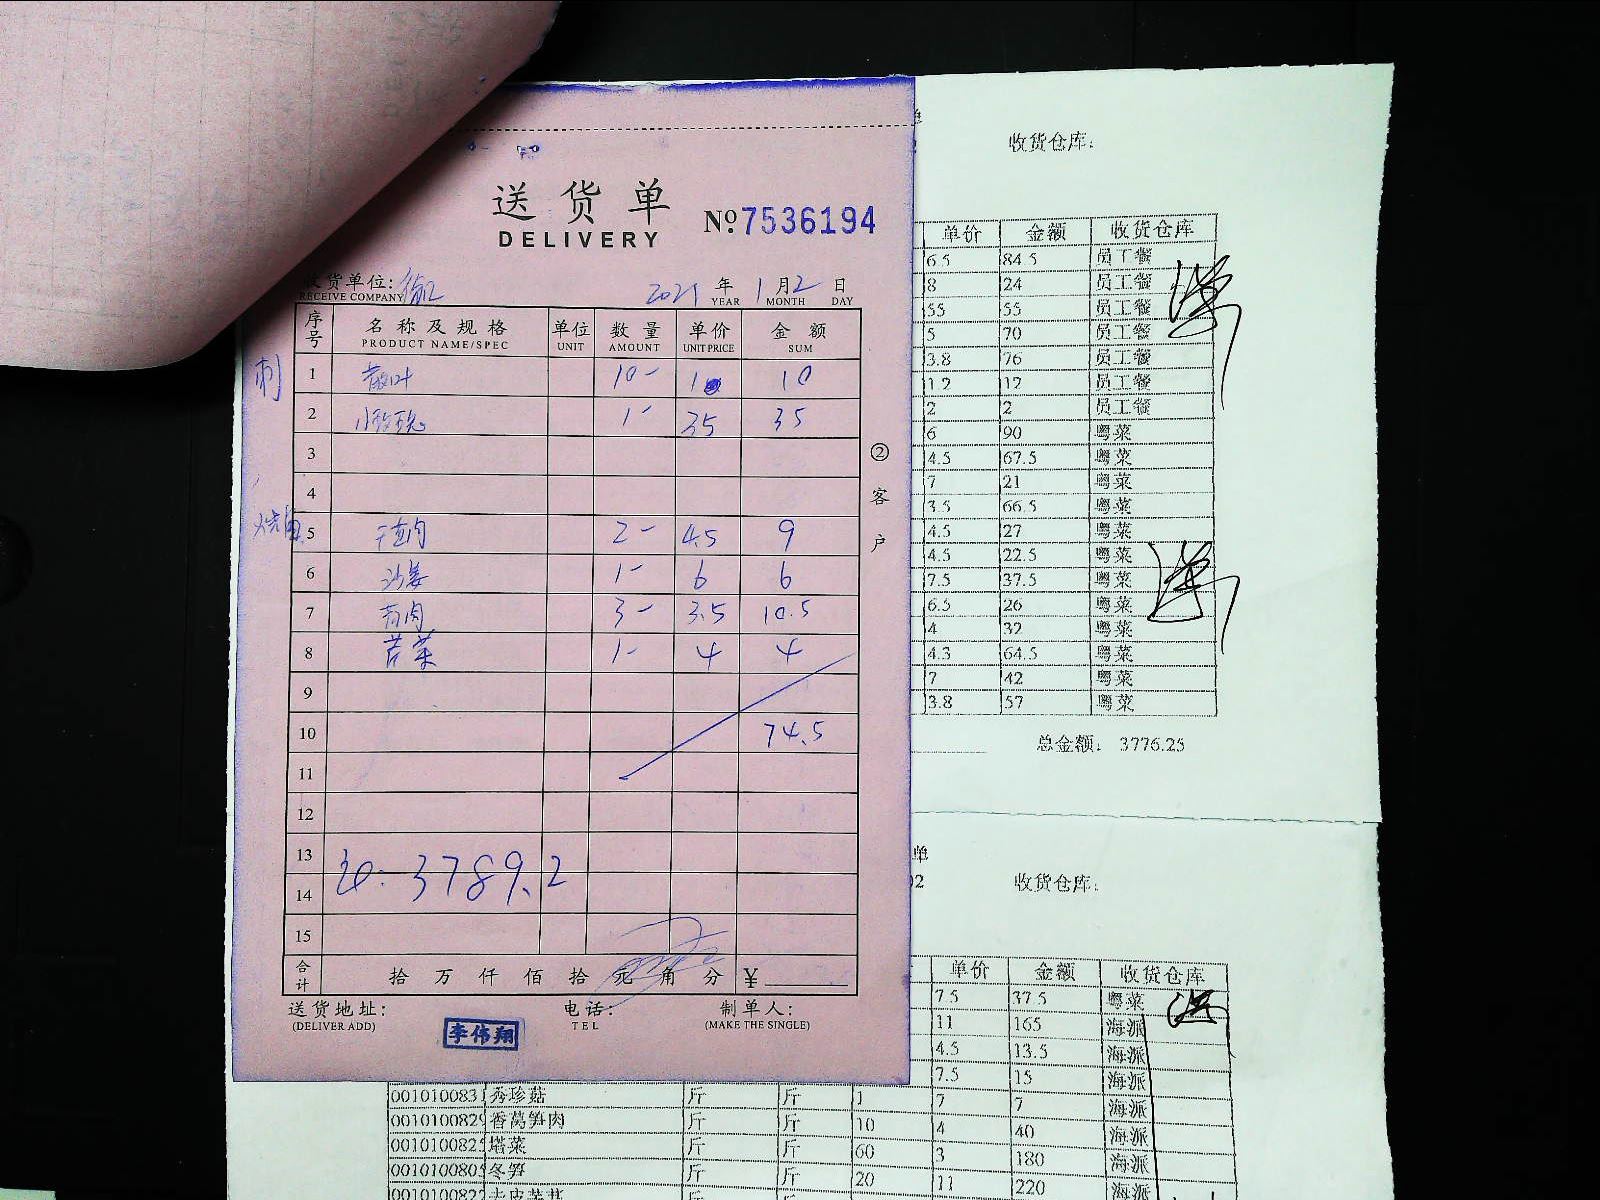 送货单
DELIVERY
№ 7536194
收货单位:
RECEIVE COMPANY
2021 年 1 月 2 日
YEAR MONTH DAY
序号 名称及规格 单位 数量 单价 金额
PRODUCT NAME/SPEC UNIT AMOUNT UNIT PRICE SUM
刺
1 10- 1 10
2 小玫瑰 1- 35 35
3
4
5 2- 4.5 9
6 沙姜 1- 6 6
7 3- 3.5 10.5
8 苦菜 1- 4 4
9
10 74.5
11
12
13
14 3789.2
15
合计 拾 万 仟 佰 拾 元 角 分 ¥
送货地址: 电话: 制单人:
(DELIVER ADD) TEL (MAKE THE SINGLE)
李伟翔
②客户
收货仓库:
单价 金额 收货仓库
6.5 84.5 员工餐
8 24 员工餐
55 55 员工餐
5 70 员工餐
3.8 76 员工餐
1.2 12 员工餐
2 2 员工餐
6 90 粤菜
4.5 67.5 粤菜
7 21 粤菜
3.5 66.5 粤菜
4.5 27 粤菜
4.5 22.5 粤菜
7.5 37.5 粤菜
6.5 26 粤菜
4 32 粤菜
4.3 64.5 粤菜
7 42 粤菜
3.8 57 粤菜
总金额: 3776.25
单
02 收货仓库:
单价 金额 收货仓库
7.5 37.5 粤菜
11 165 海派
4.5 13.5 海派
7.5 15 海派
0010100831 秀珍菇 斤 斤 1 7 7 海派
001010082 香莴笋肉 斤 斤 10 4 40 海派
001010082 塔菜 斤 斤 60 3 180 海派
001010080 冬笋 斤 斤 20 11 220 海派